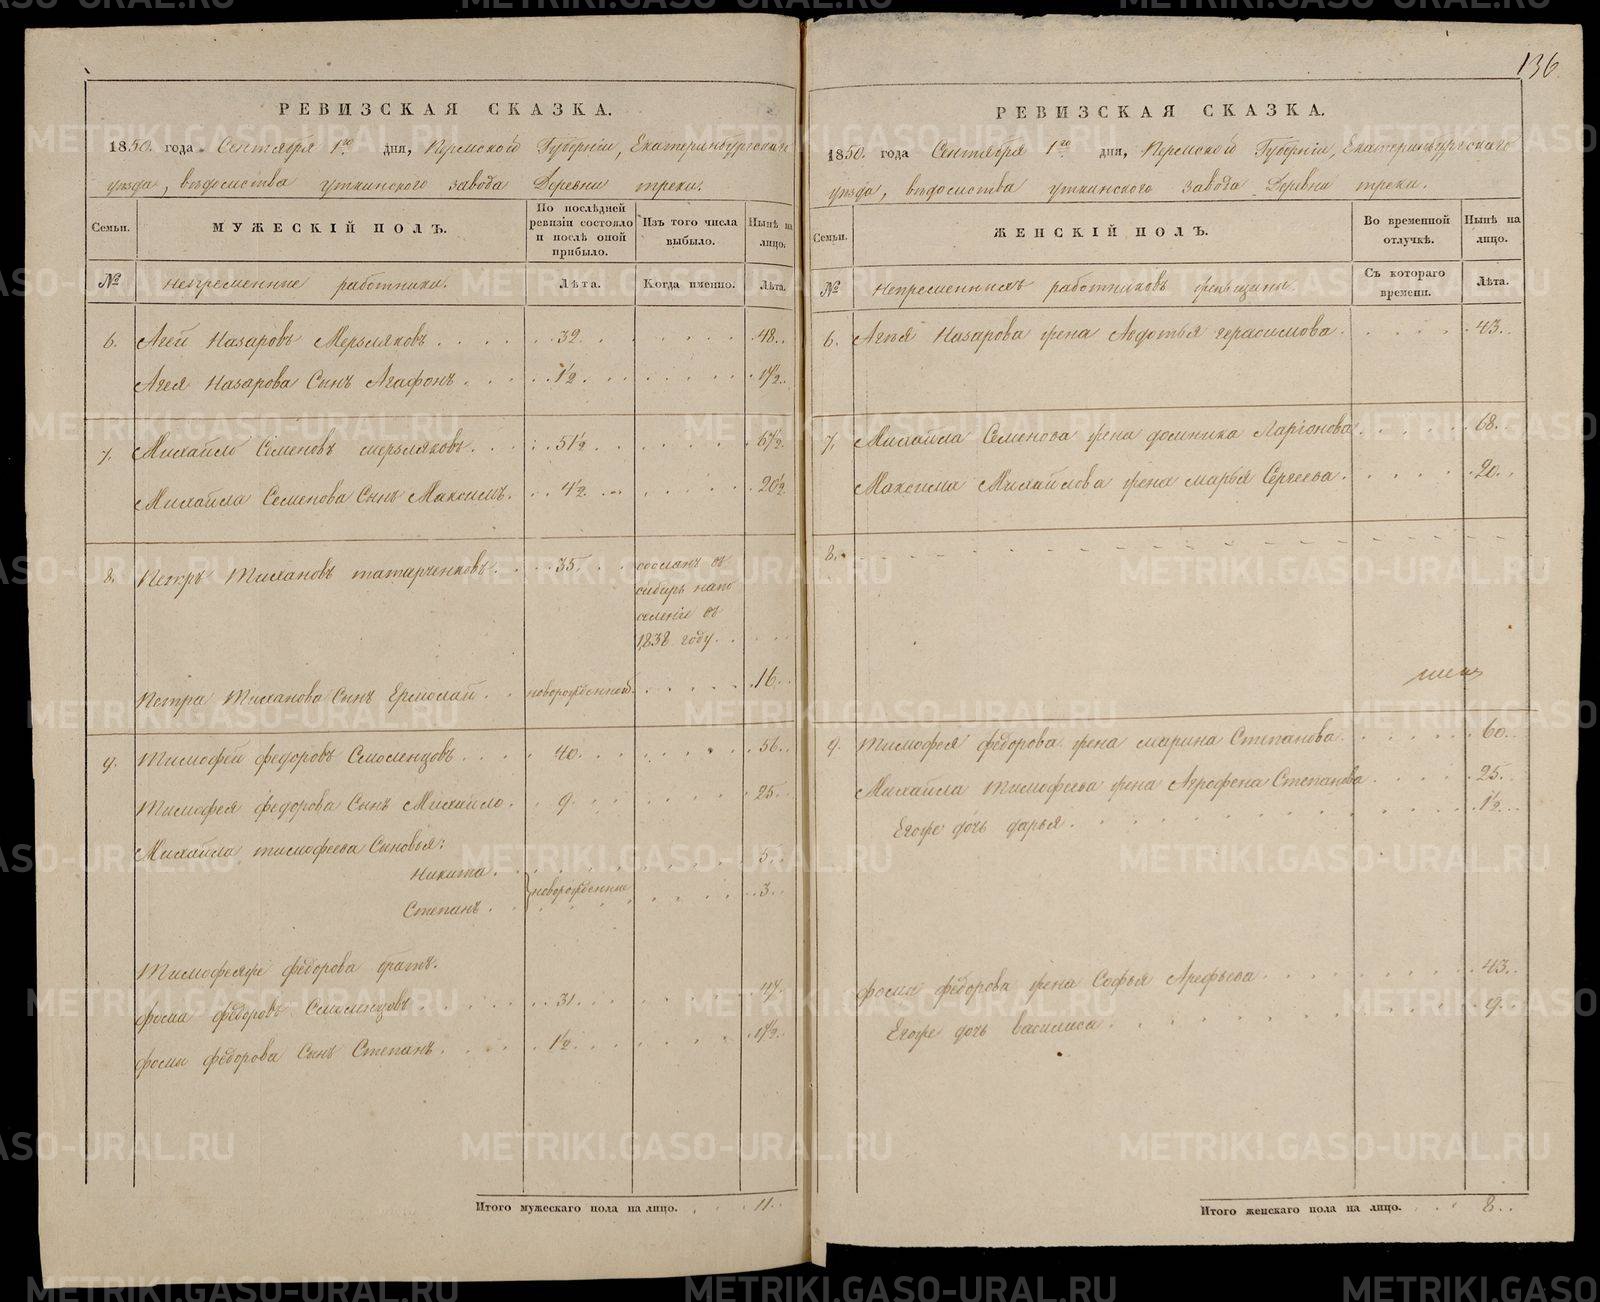 136
РЕВИЗСКАЯ СКАЗКА.
1850. года Сентября 1го дня, Пермской Губернiи, Екатеринбургскаго
уѣзда, вѣдомства уткинского завода Деревни треки.
Семьи. МУЖЕСКIЙ ПОЛЪ. По послѣдней ревизiи состояло и послѣ оной прибыло. Изъ того числа выбыло. Нынѣ на лицо.
№ Непременные работники. Лѣта. Когда именно. Лѣта.
6. Агей Назаровъ Мерзляковъ 32. 48.
Агея Назарова Сынъ Агафонъ 1½. 17½.
7. Михайло Семеновъ мерзляковъ 51½ 67½
Михайла Семенова Сынъ Максимъ. 4½ 20½
8. Петръ Тихановъ татарченковъ 35. сосланъ въ
сибирь напо
селенiе въ
1838 году.
Петра Тиханова Сынъ Ермолай новорожденной 16.
9. Тимофей федоровъ Смоленцовъ 40. 56.
Тимофея федорова Сынъ Михайло. 9. 25.
Михайла тимофеева Сыновья:
Никита. 5.
новорожденные
Степанъ. 3.
Тимофеяже федорова братъ.
фома федоровъ Смоленцовъ 31. 47.
фомы федорова Сынъ Степанъ. 1½. 17½.
Итого мужескаго пола на лицо. 11.
РЕВИЗСКАЯ СКАЗКА.
1850. года Сентября 1го дня, Пермской Губернiи, Екатеринбургскаго
уѣзда, вѣдомства уткинского завода Деревни треки.
Семьи. ЖЕНСКIЙ ПОЛЪ. Во временной отлучкѣ. Нынѣ на лицо.
№ Непременныхъ работниковъ женщины. Съ котораго времени. Лѣта.
6. Агея Назарова жена Авдотья герасимова. 43.
7. Михайла Семенова жена домника Ларiонова 68.
Максима Михайлова жена марья Сергеева. 20.
8.
9. Тимофея федорова жена марина Степанова 60.
Михайла тимофеева жена Агрофена Степанова 25.
Егоже дочь дарья. 1½.
фомы федорова жена Софья Арефьева 43.
Егоже дочь василиса. 9.
Итого женскаго пола на лицо. 8.
METRIKI.GASO-URAL.RU